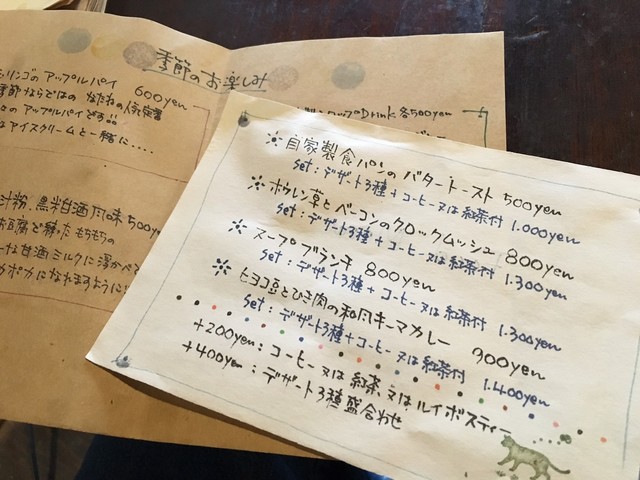 季節のお楽しみ
リンゴのアップルパイ 600yen
季節ならではの なたねの人気定番
のアップルパイです
アイスクリームと一緒に....
Drink 各500yen
汁粉 黒米甘酒風味 500
お豆腐で練ったもちもちの
な甘酒ミルクに浮かべて
ポカポカになれますように
※自家製食パンのバタートースト 500yen
set:デザート3種+コーヒー又は紅茶付 1.000yen
※ホウレン草とベーコンのクロックムッシュ 800yen
set:デザート3種+コーヒー又は紅茶付 1.300yen
※スープブランチ 800yen
set:デザート3種+コーヒー又は紅茶付 1.300yen
※ヒヨコ豆とひき肉の和風キーマカレー 900yen
set:デザート3種+コーヒー又は紅茶付 1.400yen
+200yen:コーヒー又は紅茶、又はルイボスティー
+400yen:デザート3種盛合わせ